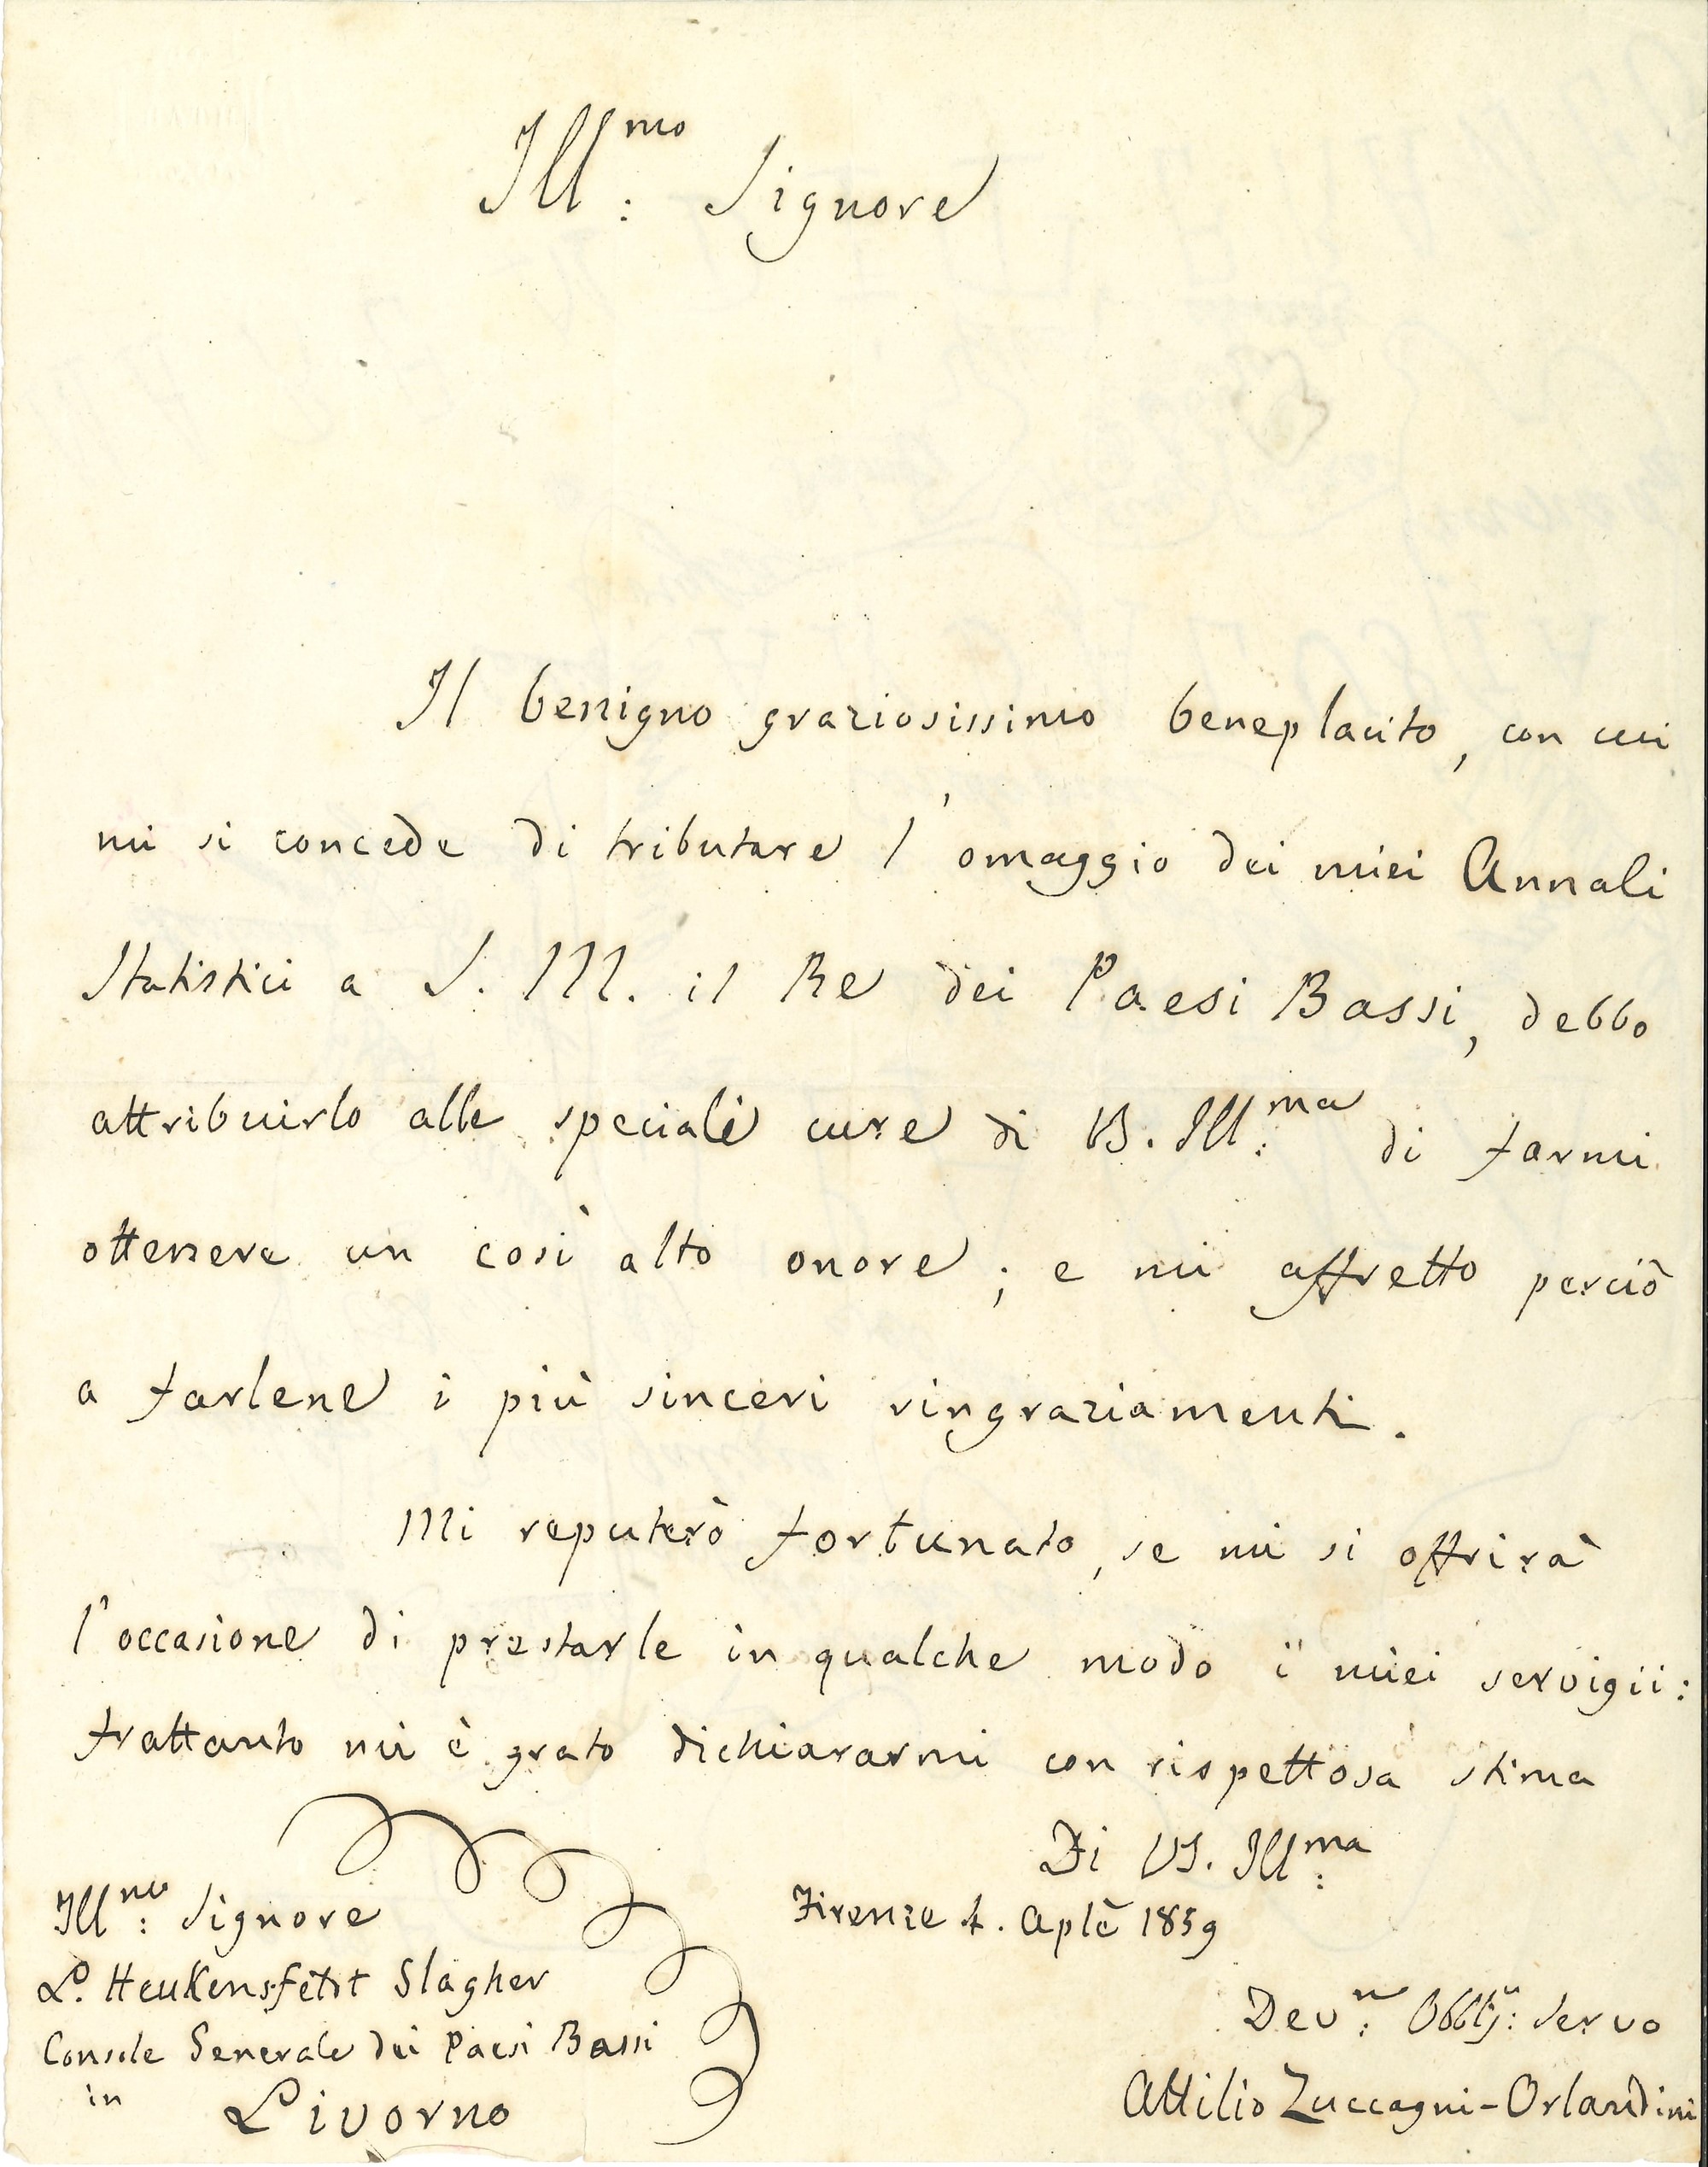 Ill.mo: Signore
Il benigno graziosissimo beneplacito, con cui
mi si concede di tributare l'omaggio dei miei Annali
Statistici a S. M. il Re dei Paesi Bassi, debbo
attribuirlo alle speciali cure di VS. Ill:ma di farmi
ottenere un così alto onore; e mi affretto perciò
a farlene i più sinceri ringraziamenti.
Mi reputerò fortunato, se mi si offrirà
l'occasione di prestarle in qualche modo i miei servigii:
frattanto mi è grato dichiararmi con rispettosa stima
Di VS. Ill:ma
Firenze 4. Aple 1859
Ill:mo Signore
L. Heukensfeldt Slagher
Console Generale dei Paesi Bassi
in Livorno
Dev: Obbl: Servo
Attilio Zuccagni-Orlandini